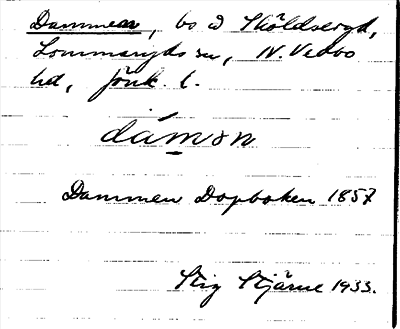 Dammen, bo å Sköldseryd,
Lommaryds sn, N. Vedbo
hd, Jönk. l.
dámǝn
Dammen Dopboken 1857
Stig Stjärne 1933.